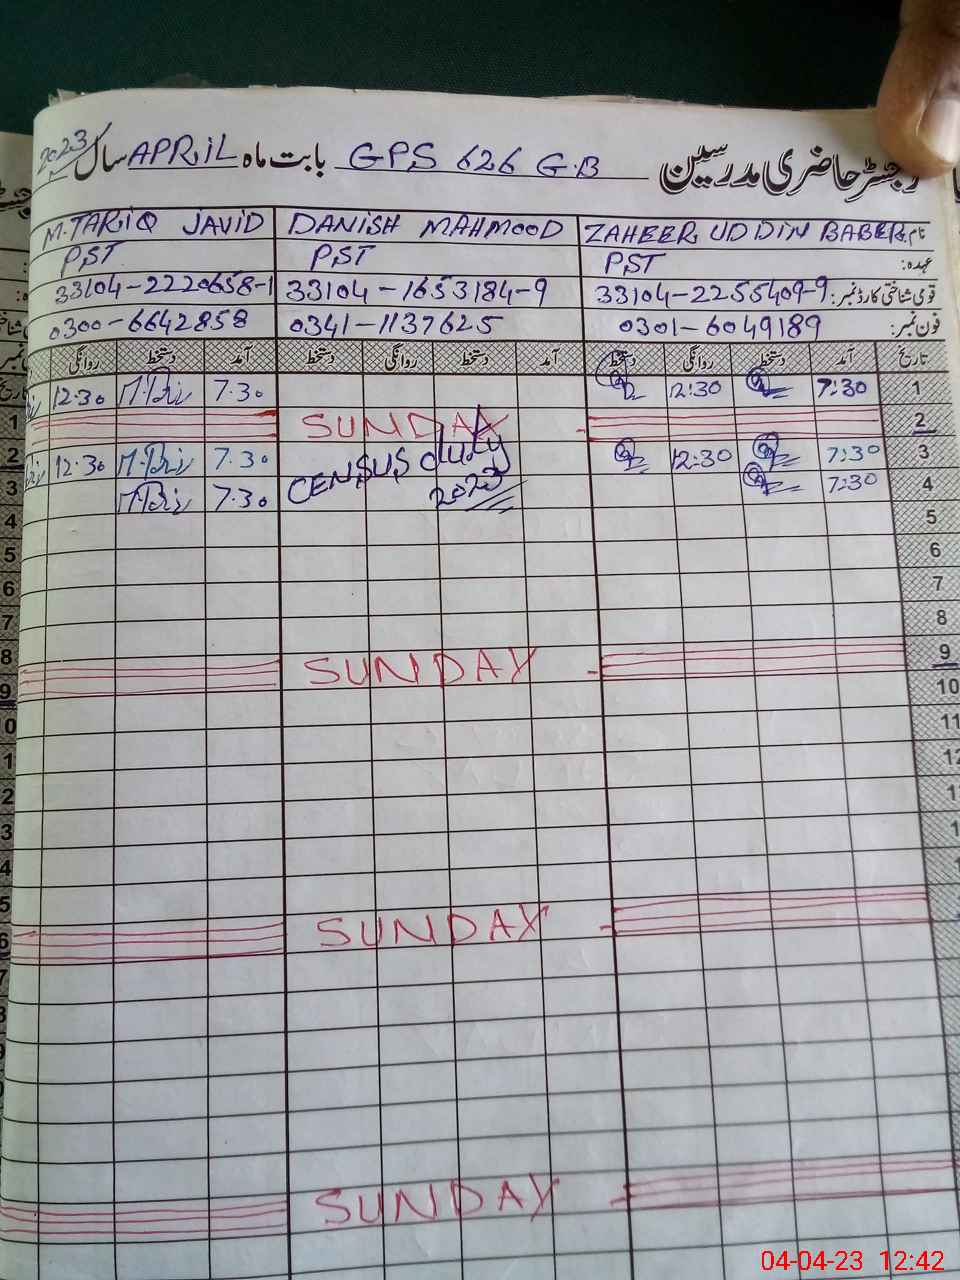 رجسٹر حاضری مدرسین GPS 626 G.B بابت ماہ APRIL سال 2023
نام: ZAHEER UDDIN BABER DANISH MAHMOOD M.TARIQ JAVID
عہدہ: PST PST PST
قومی شناختی کارڈ نمبر: 33104-2255409-9 33104-1653184-9 33104-2220658-1
فون نمبر: 0301-6049189 0341-1137625 0300-6642858
تاریخ آمد دستخط روانگی دستخط آمد دستخط روانگی دستخط آمد دستخط روانگی
1 7:30 12:30 7.30 12.30
2 SUNDAY
3 7:30 12:30 CENSUS duty 7.30 12.30
4 7:30 2023 7.30
5
6
7
8
9 SUNDAY
10
11
12
SUNDAY
SUNDAY
04-04-23 12:42